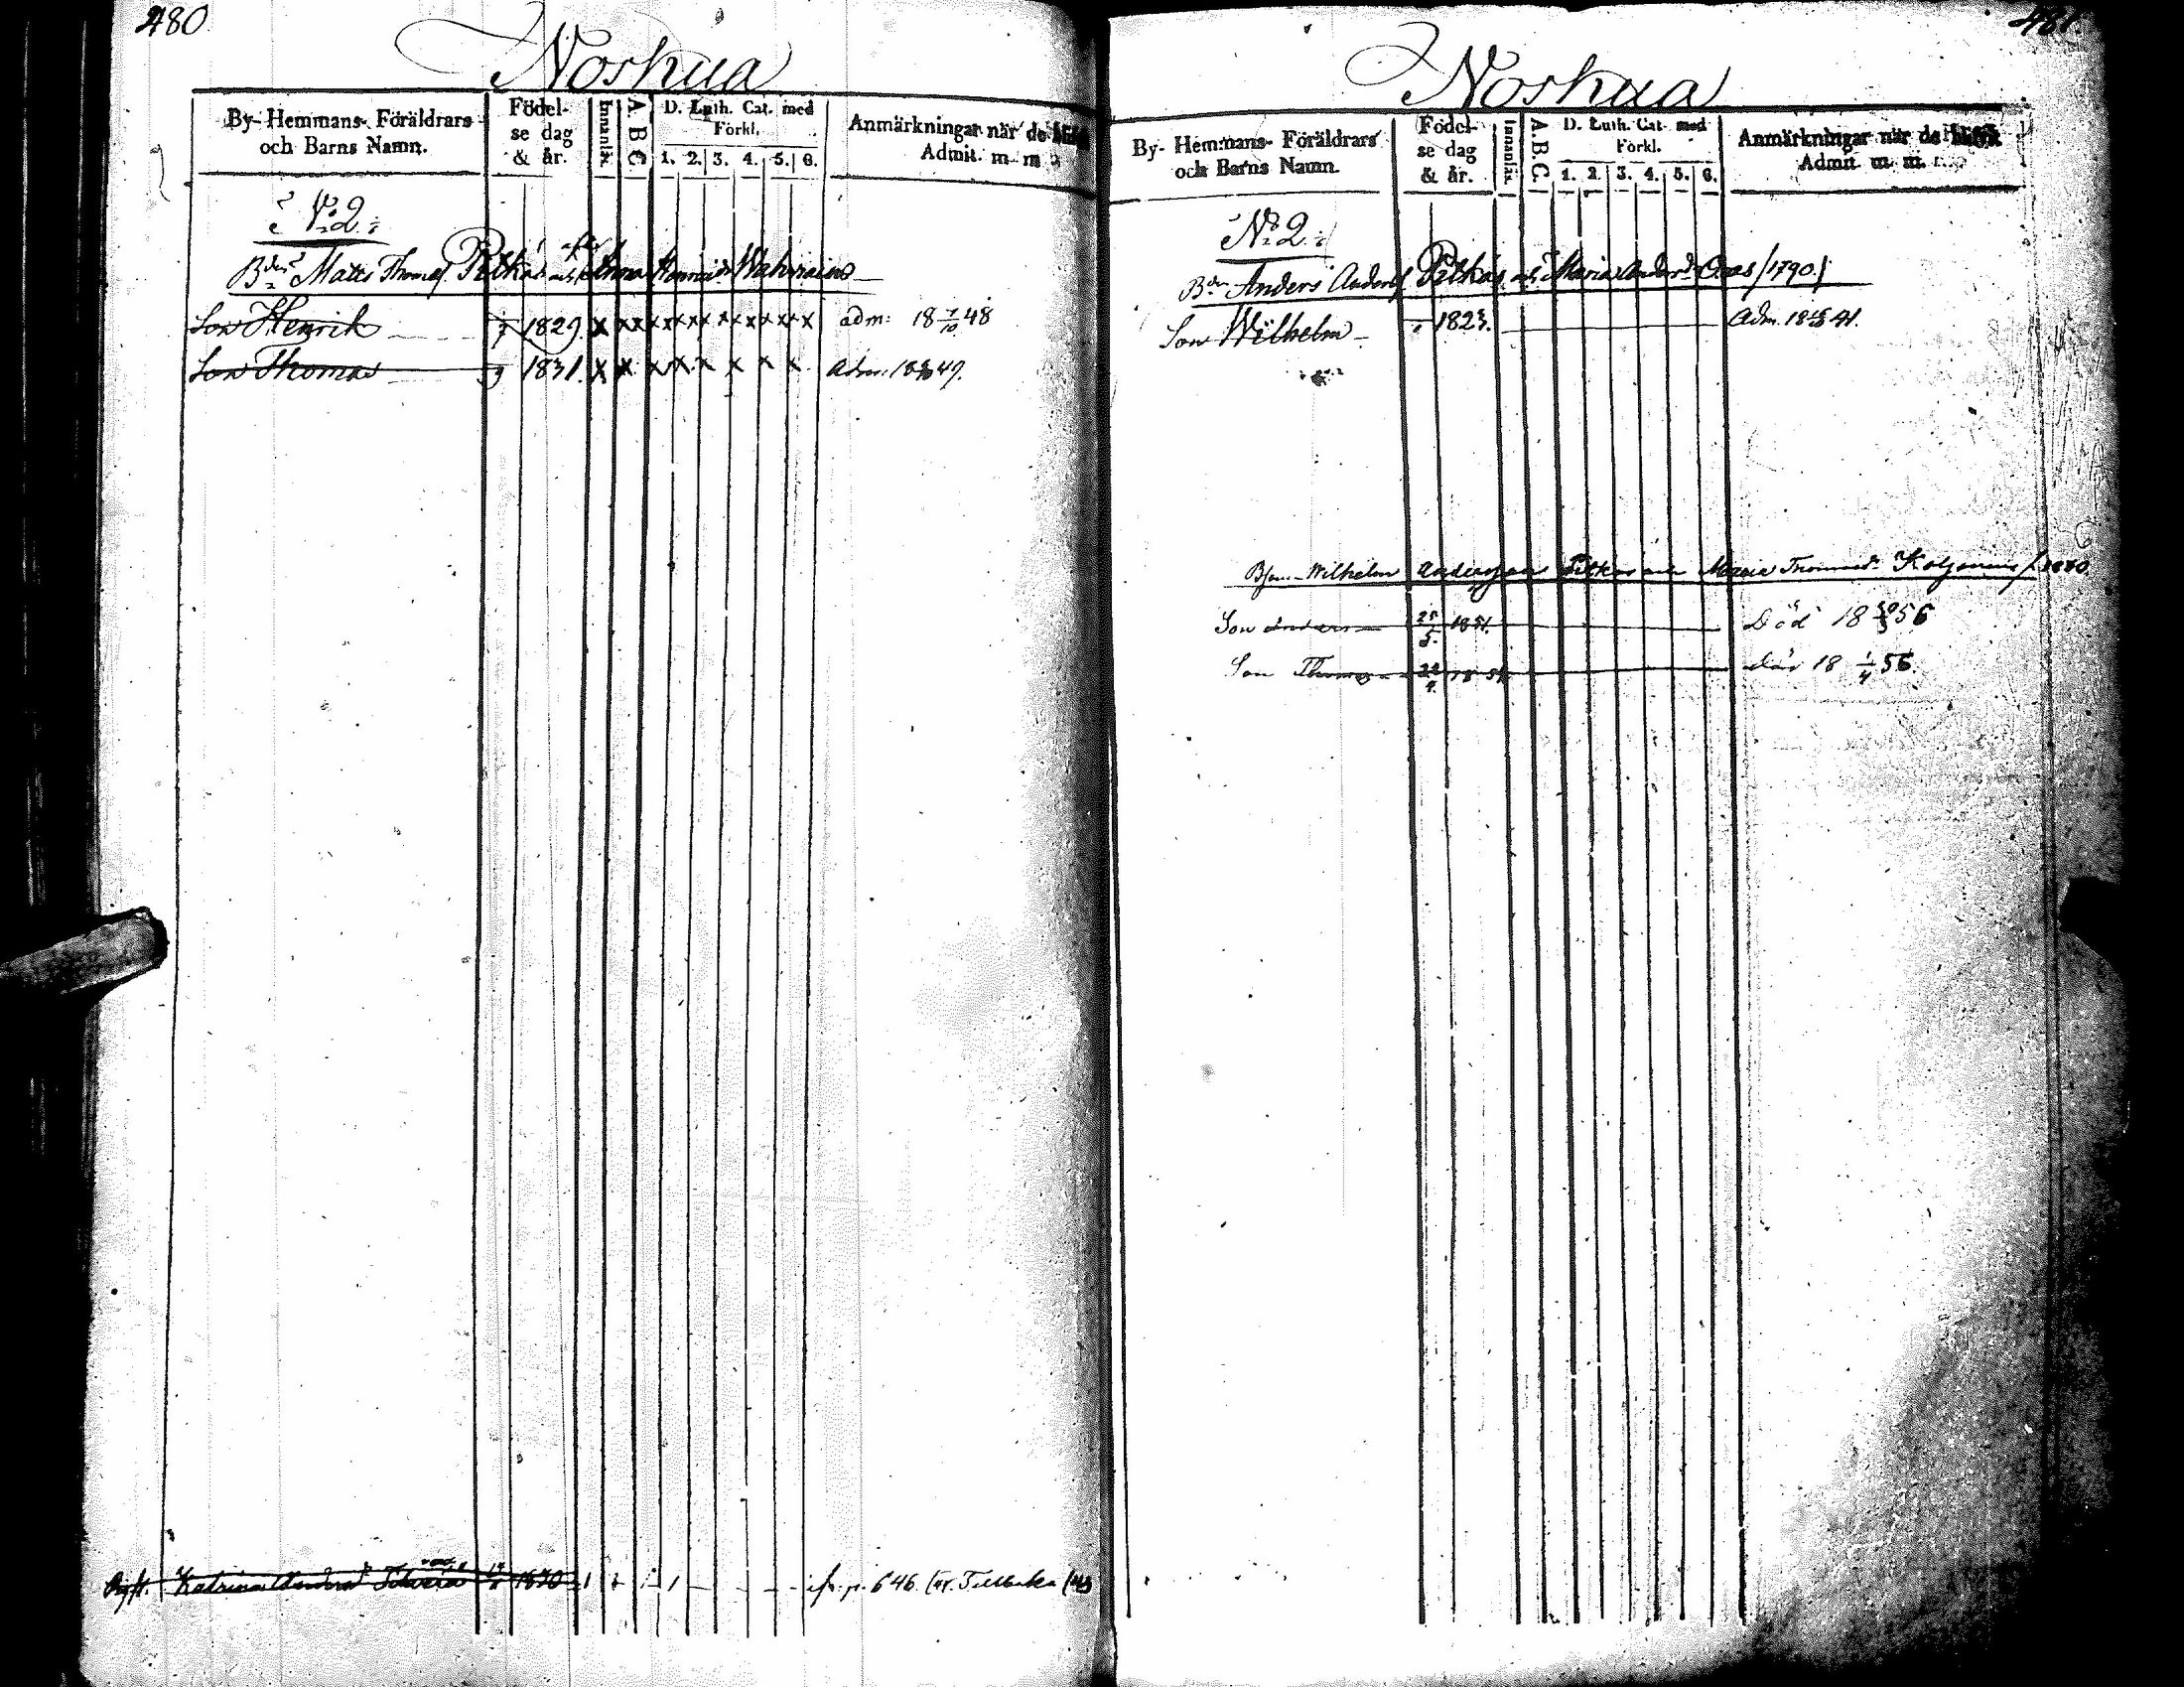 480
Noskua
By- Hemmans- Föräldrars och Barns Namn.
Födelse dag & år.
Innanläs.
A B C
D. Luth. Cat. med Förkl.
1. 2. 3. 4. 5. 6.
Anmärkningar när de
Admit. m m
No 2.
Bdn Matts Thomasf Pitkäs och Anna Henricsdr
Son Henrik 1829. x x x x x x x x x x x x adm: 18 7/10 48
Son Thomas 1831. x x x x x x x x Adm: 18 49.
Katrina Andersdr 1830 p. 646. Tillbaka
481.
Noskua
By- Hemmans- Föräldrars och Barns Namn.
Födelse dag & år.
Innanläs.
A.B.C.
D. Luth. Cat. med Förkl.
1. 2. 3. 4. 5. 6.
Anmärkningar när de
Admit m m.
No 2.
Bdn Anders Andersf Pitkäs och Maria Andersdr Oras /1790./
Son Wilhelm 1823. Adm. 18 41.
Wilhelm Andersson Pitkäs och Maria Thomasdr
Son Anders 25/5. 1851. Död 18 56
Son Thomas 18 54 Död 18 1/4 56.